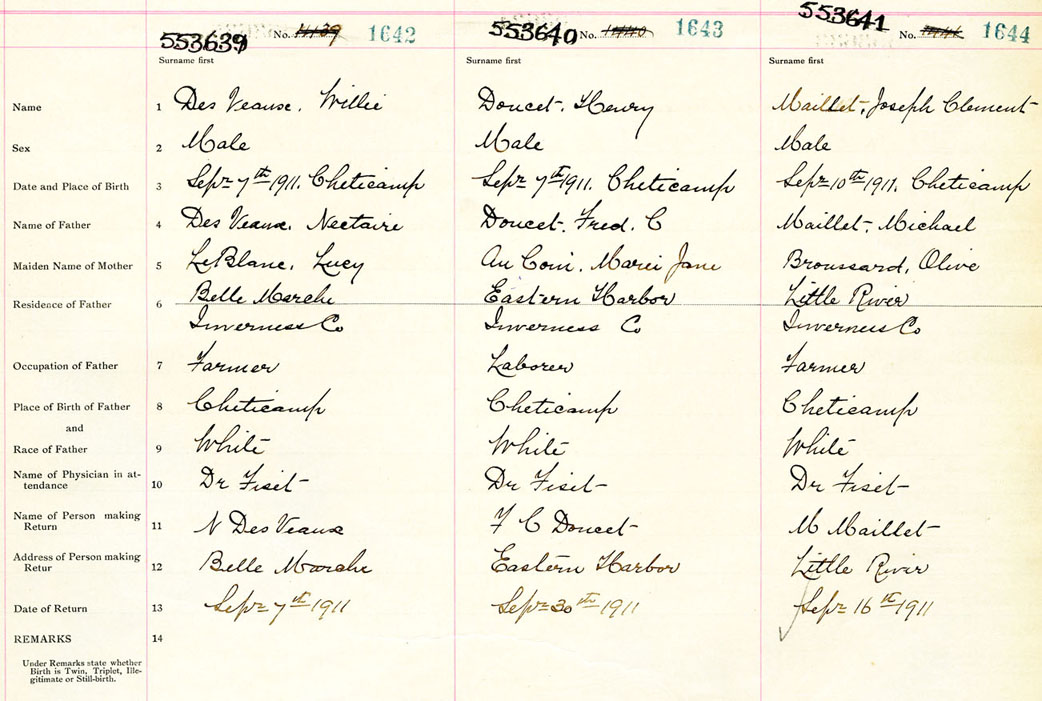 553639 No. 1139 1642 553640 No. 1140 1643 553641 No. 1642 1644
Surname first Surname first Surname first
Name 1 Des Veaux, Willie Doucet, Henry Maillet, Joseph Clement
Sex 2 Male Male Male
Date and Place of Birth 3 Sepr 7th 1911. Cheticamp Sepr 7th 1911. Cheticamp Sepr 10th 1911. Cheticamp
Name of Father 4 Des Veaux, Nectaire Doucet, Fred. C Maillet, Michael
Maiden Name of Mother 5 LeBlanc, Lucy Au Coin, Marei Jane Broussard, Olive
Residence of Father 6 Belle Marche Eastern Harbor Little River
Inverness Co Inverness Co Inverness Co
Occupation of Father 7 Farmer Laborer Farmer
Place of Birth of Father 8 Cheticamp Cheticamp Cheticamp
and
Race of Father 9 White White White
Name of Physician in at-
tendance 10 Dr Fiset Dr Fiset Dr Fiset
Name of Person making
Return 11 N Des Veaux F C Doucet M Maillet
Address of Person making
Retur 12 Belle Marche Eastern Harbor Little River
Date of Return 13 Sepr 7th 1911 Sepr 30th 1911 Sepr 16th 1911
REMARKS 14
Under Remarks state whether
Birth is Twin, Triplet, Ille-
gitimate or Still-birth.